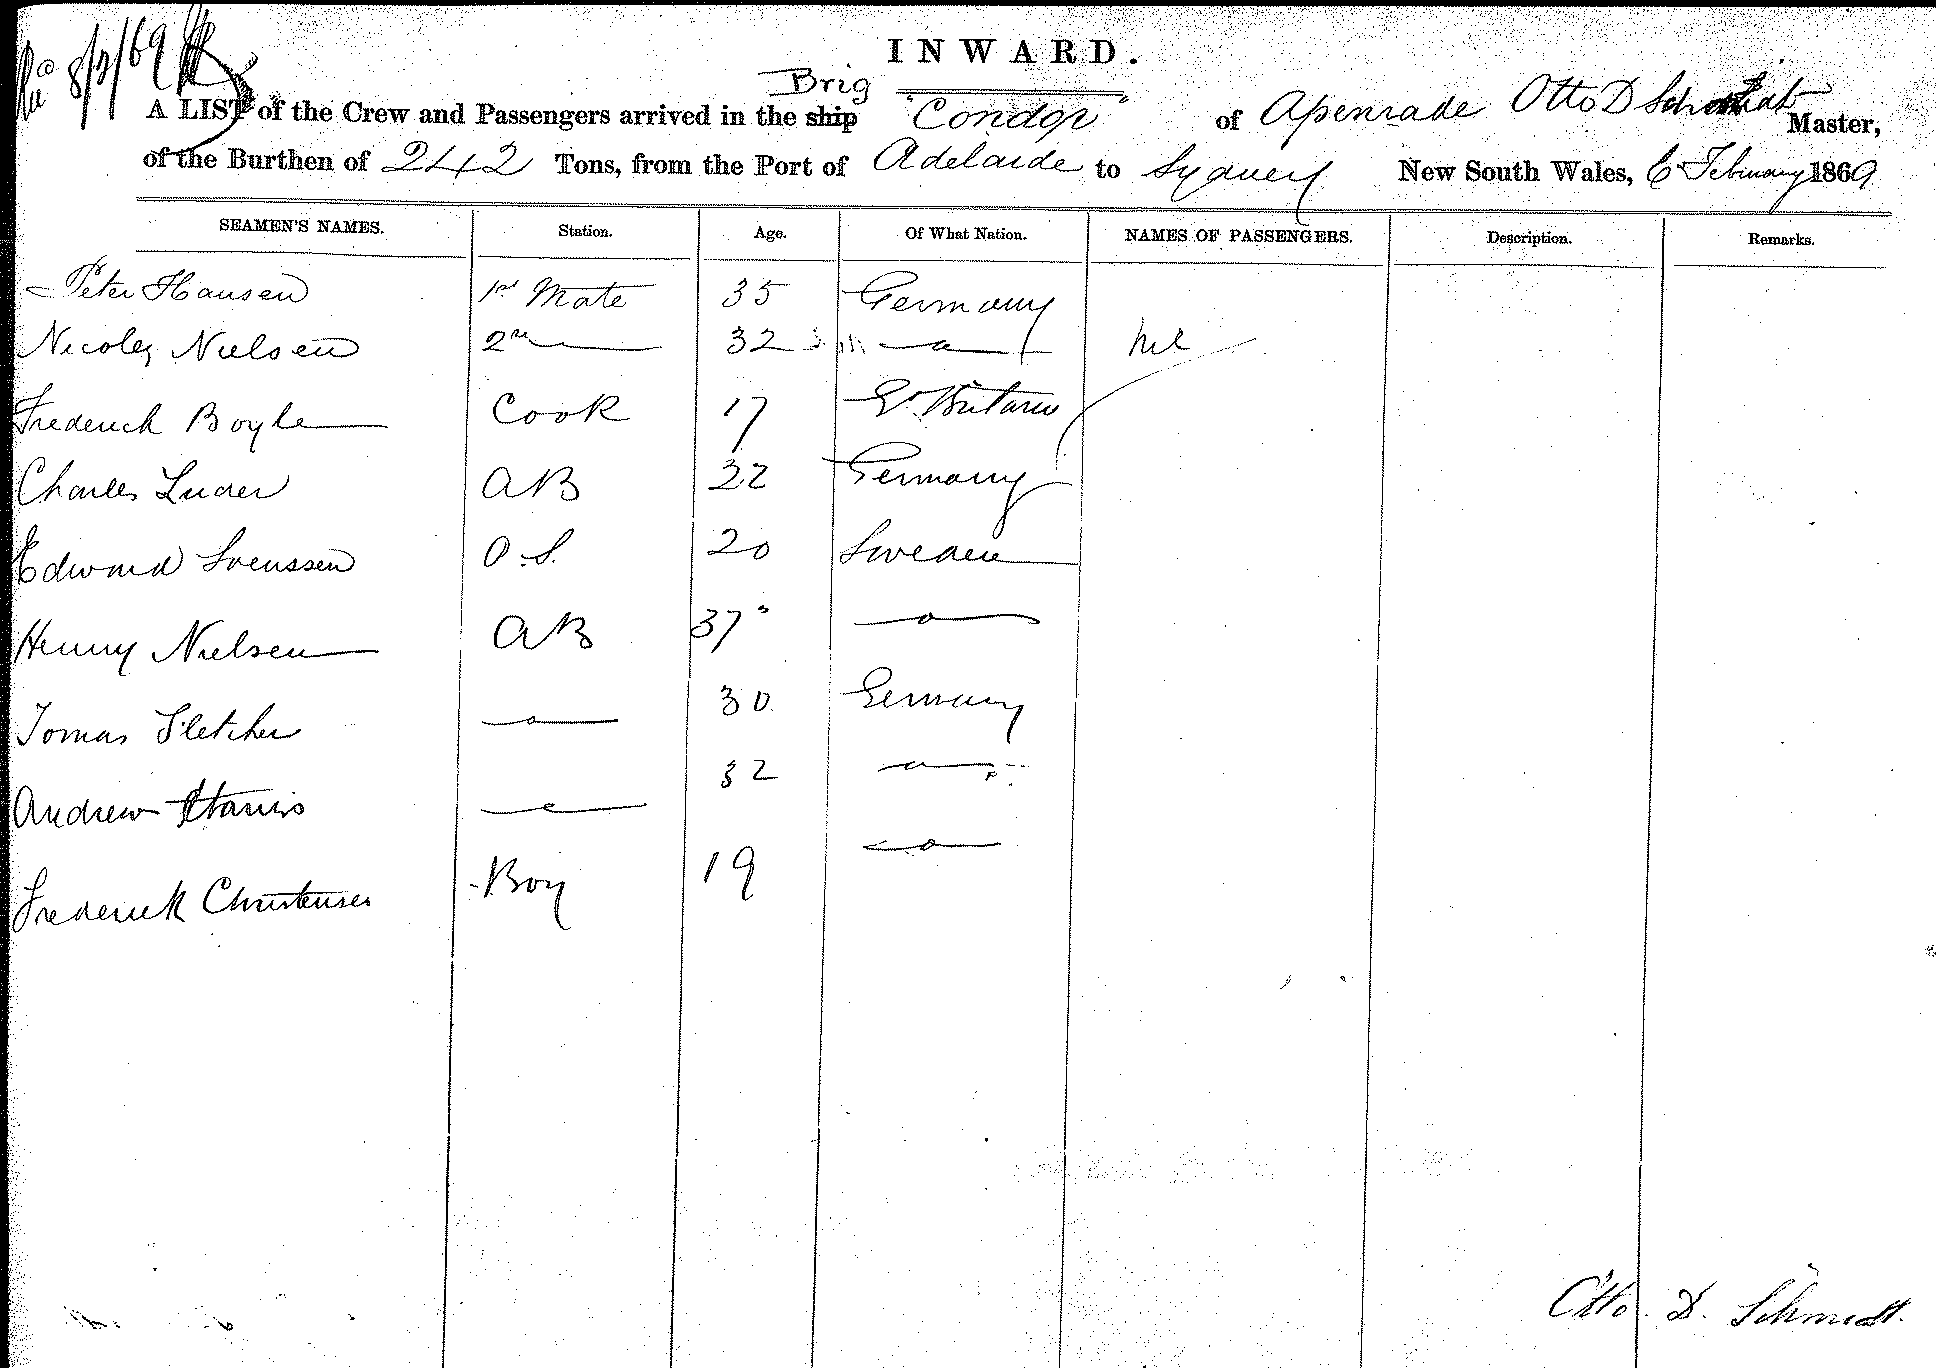 8/2/69
INWARD.
Brig
A LIST of the Crew and Passengers arrived in the ship "Condor" of Apenrade Otto D Schmidt Master,
of the Burthen of 242 Tons, from the Port of Adelaide to Sydney New South Wales, 6 February 1869
SEAMEN'S NAMES. Station. Age. Of What Nation. NAMES OF PASSENGERS. Description. Remarks.
Peter Hansen 1st Mate 35 Germany
Nicoley Nielsen 2nd 32 — " — Nil
Frederick Boyle Cook 17 Gt. Britain
Charles Luder AB 22 Germany
Edward Svenssen O.S. 20 Sweden
Henny Nielsen AB 37 — " —
Tomas Fletcher — " — 30 Germany
Andrew Harris — " — 32 — " —
Frederick Christensen Boy 19 — " —
Otto D. Schmidt.